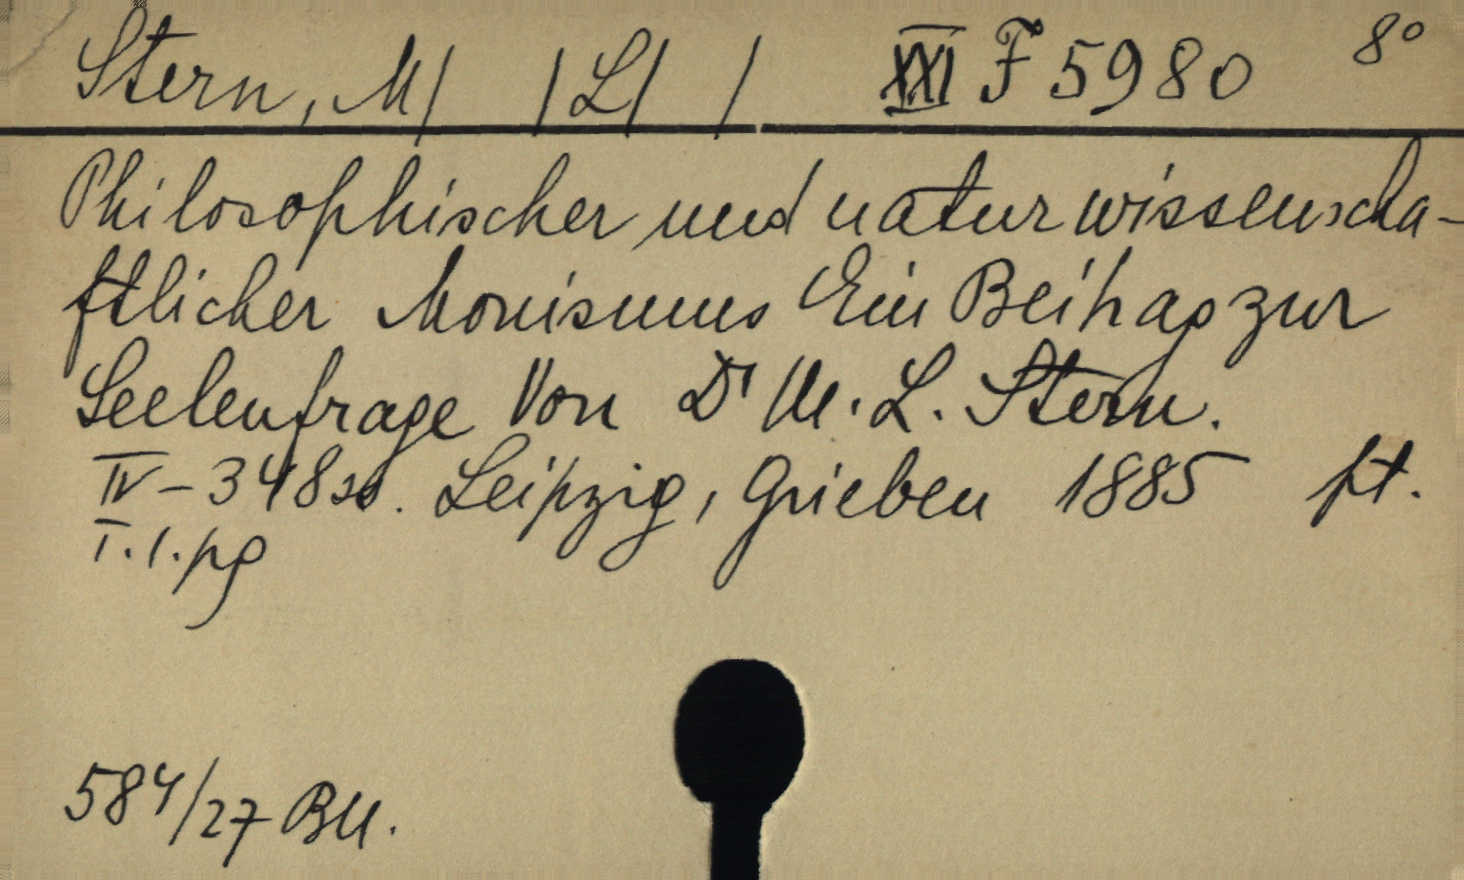 Stern, M/ /L/ / XXI F 5980 8°
Philosophischer und naturwissenscha-
ftlicher Monismus Ein Beitrag zur
Seelenfrage Von Dr M. L. Stern.
IV-348ss. Leipzig, Grieben 1885 ft.
T.1.pg
584/27 BU.